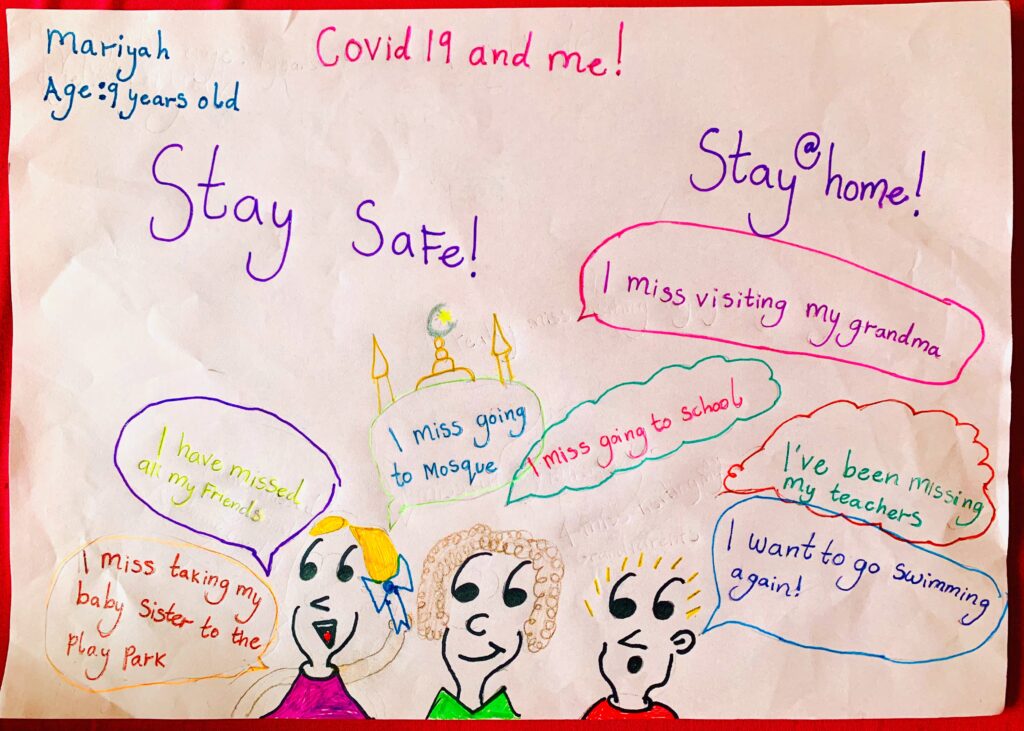 Mariyah
Age: 9 years old
Covid 19 and me!
Stay Safe!
Stay @ home!
I miss visiting my grandma
I miss going
to Mosque
I miss going to school
I have missed
all my Friends
I've been missing
my teachers
I want to go swimming
again!
I miss taking my
baby Sister to the
Play Park